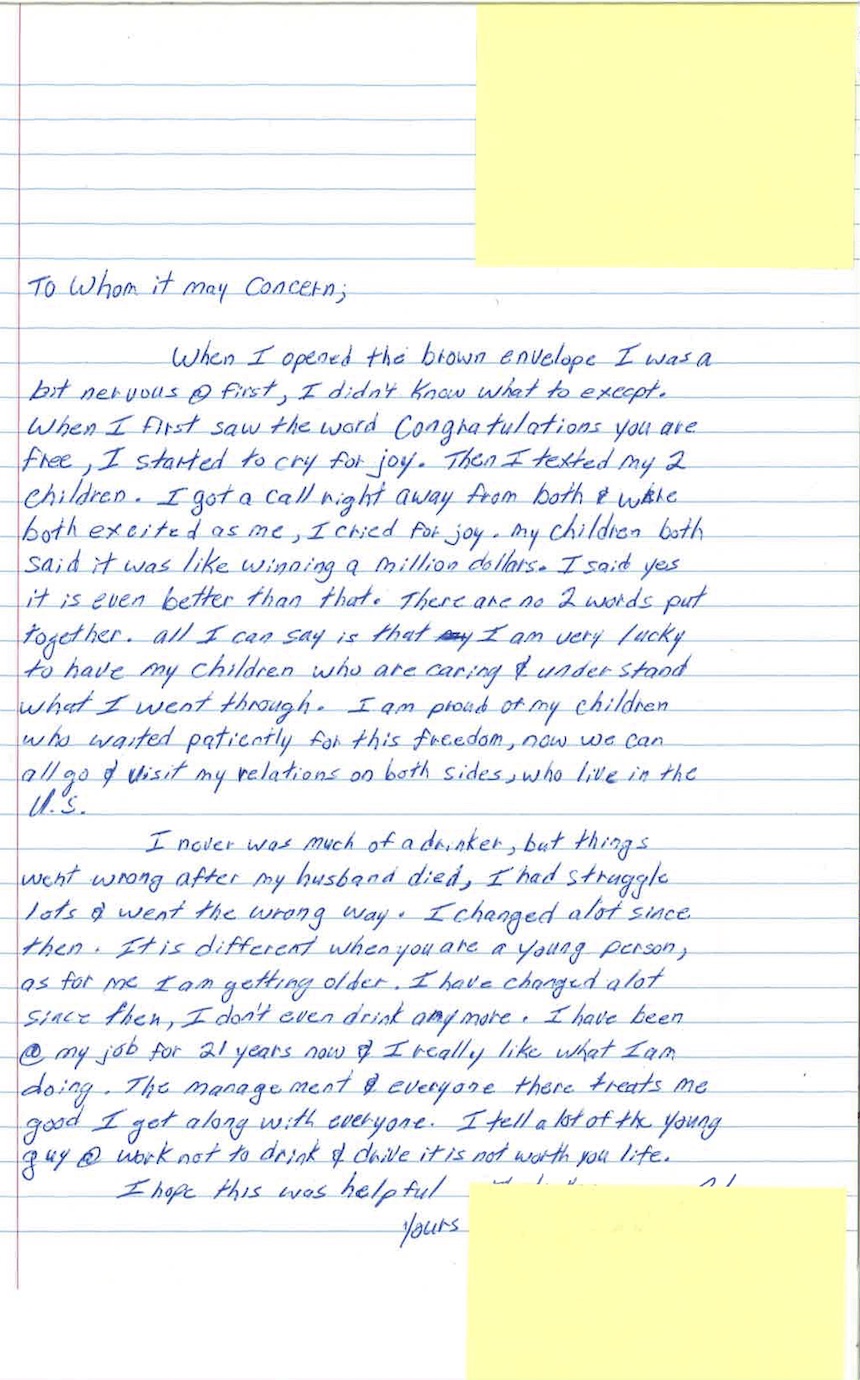 To Whom it may Concern;
When I opened the brown envelope I was a
bit nervous @ first, I didn't know what to execpt.
When I first saw the word Congratulations you are
free, I started to cry for joy. Then I texted my 2
children. I got a call right away from both &
both excited as me, I cried for joy. My children both
said it was like winning a million dollars. I said yes
it is even better than that. There are no 2 words put
together. all I can say is that I am very lucky
to have my children who are caring & understand
what I went through. I am proud of my children
who waited patiently for this freedom, now we can
all go & visit my relations on both sides, who live in the
U.S.
I never was much of a drinker, but things
went wrong after my husband died, I had struggle
lots & went the wrong way. I changed alot since
then. It is different when you are a young person,
as for me I am getting older. I have changed alot
since then, I don't even drink anymore. I have been
@ my job for 21 years now & I really like what I am
doing. The management & everyone there treats me
good I get along with everyone. I tell a lot of the young
guy @ work not to drink & drive it is not worth you life.
I hope this was helpful
Yours